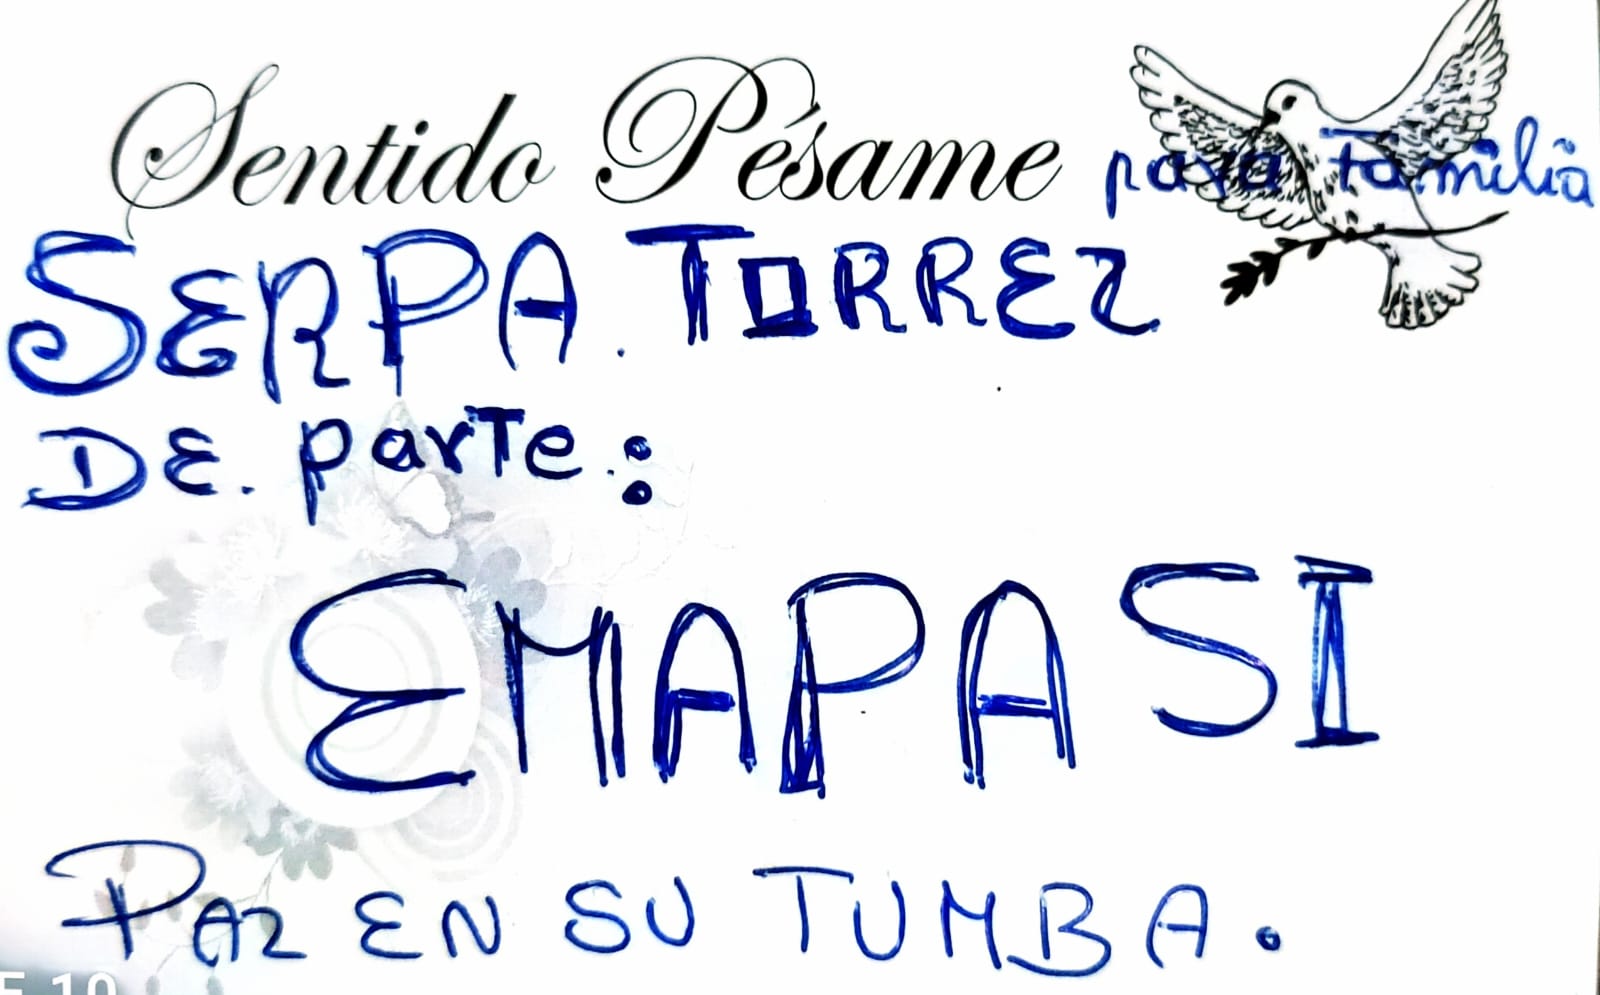 Sentido Pésame para Familia
SERPA. TORREZ
DE. parte:
EMAPASI
PAZ EN SU TUMBA.